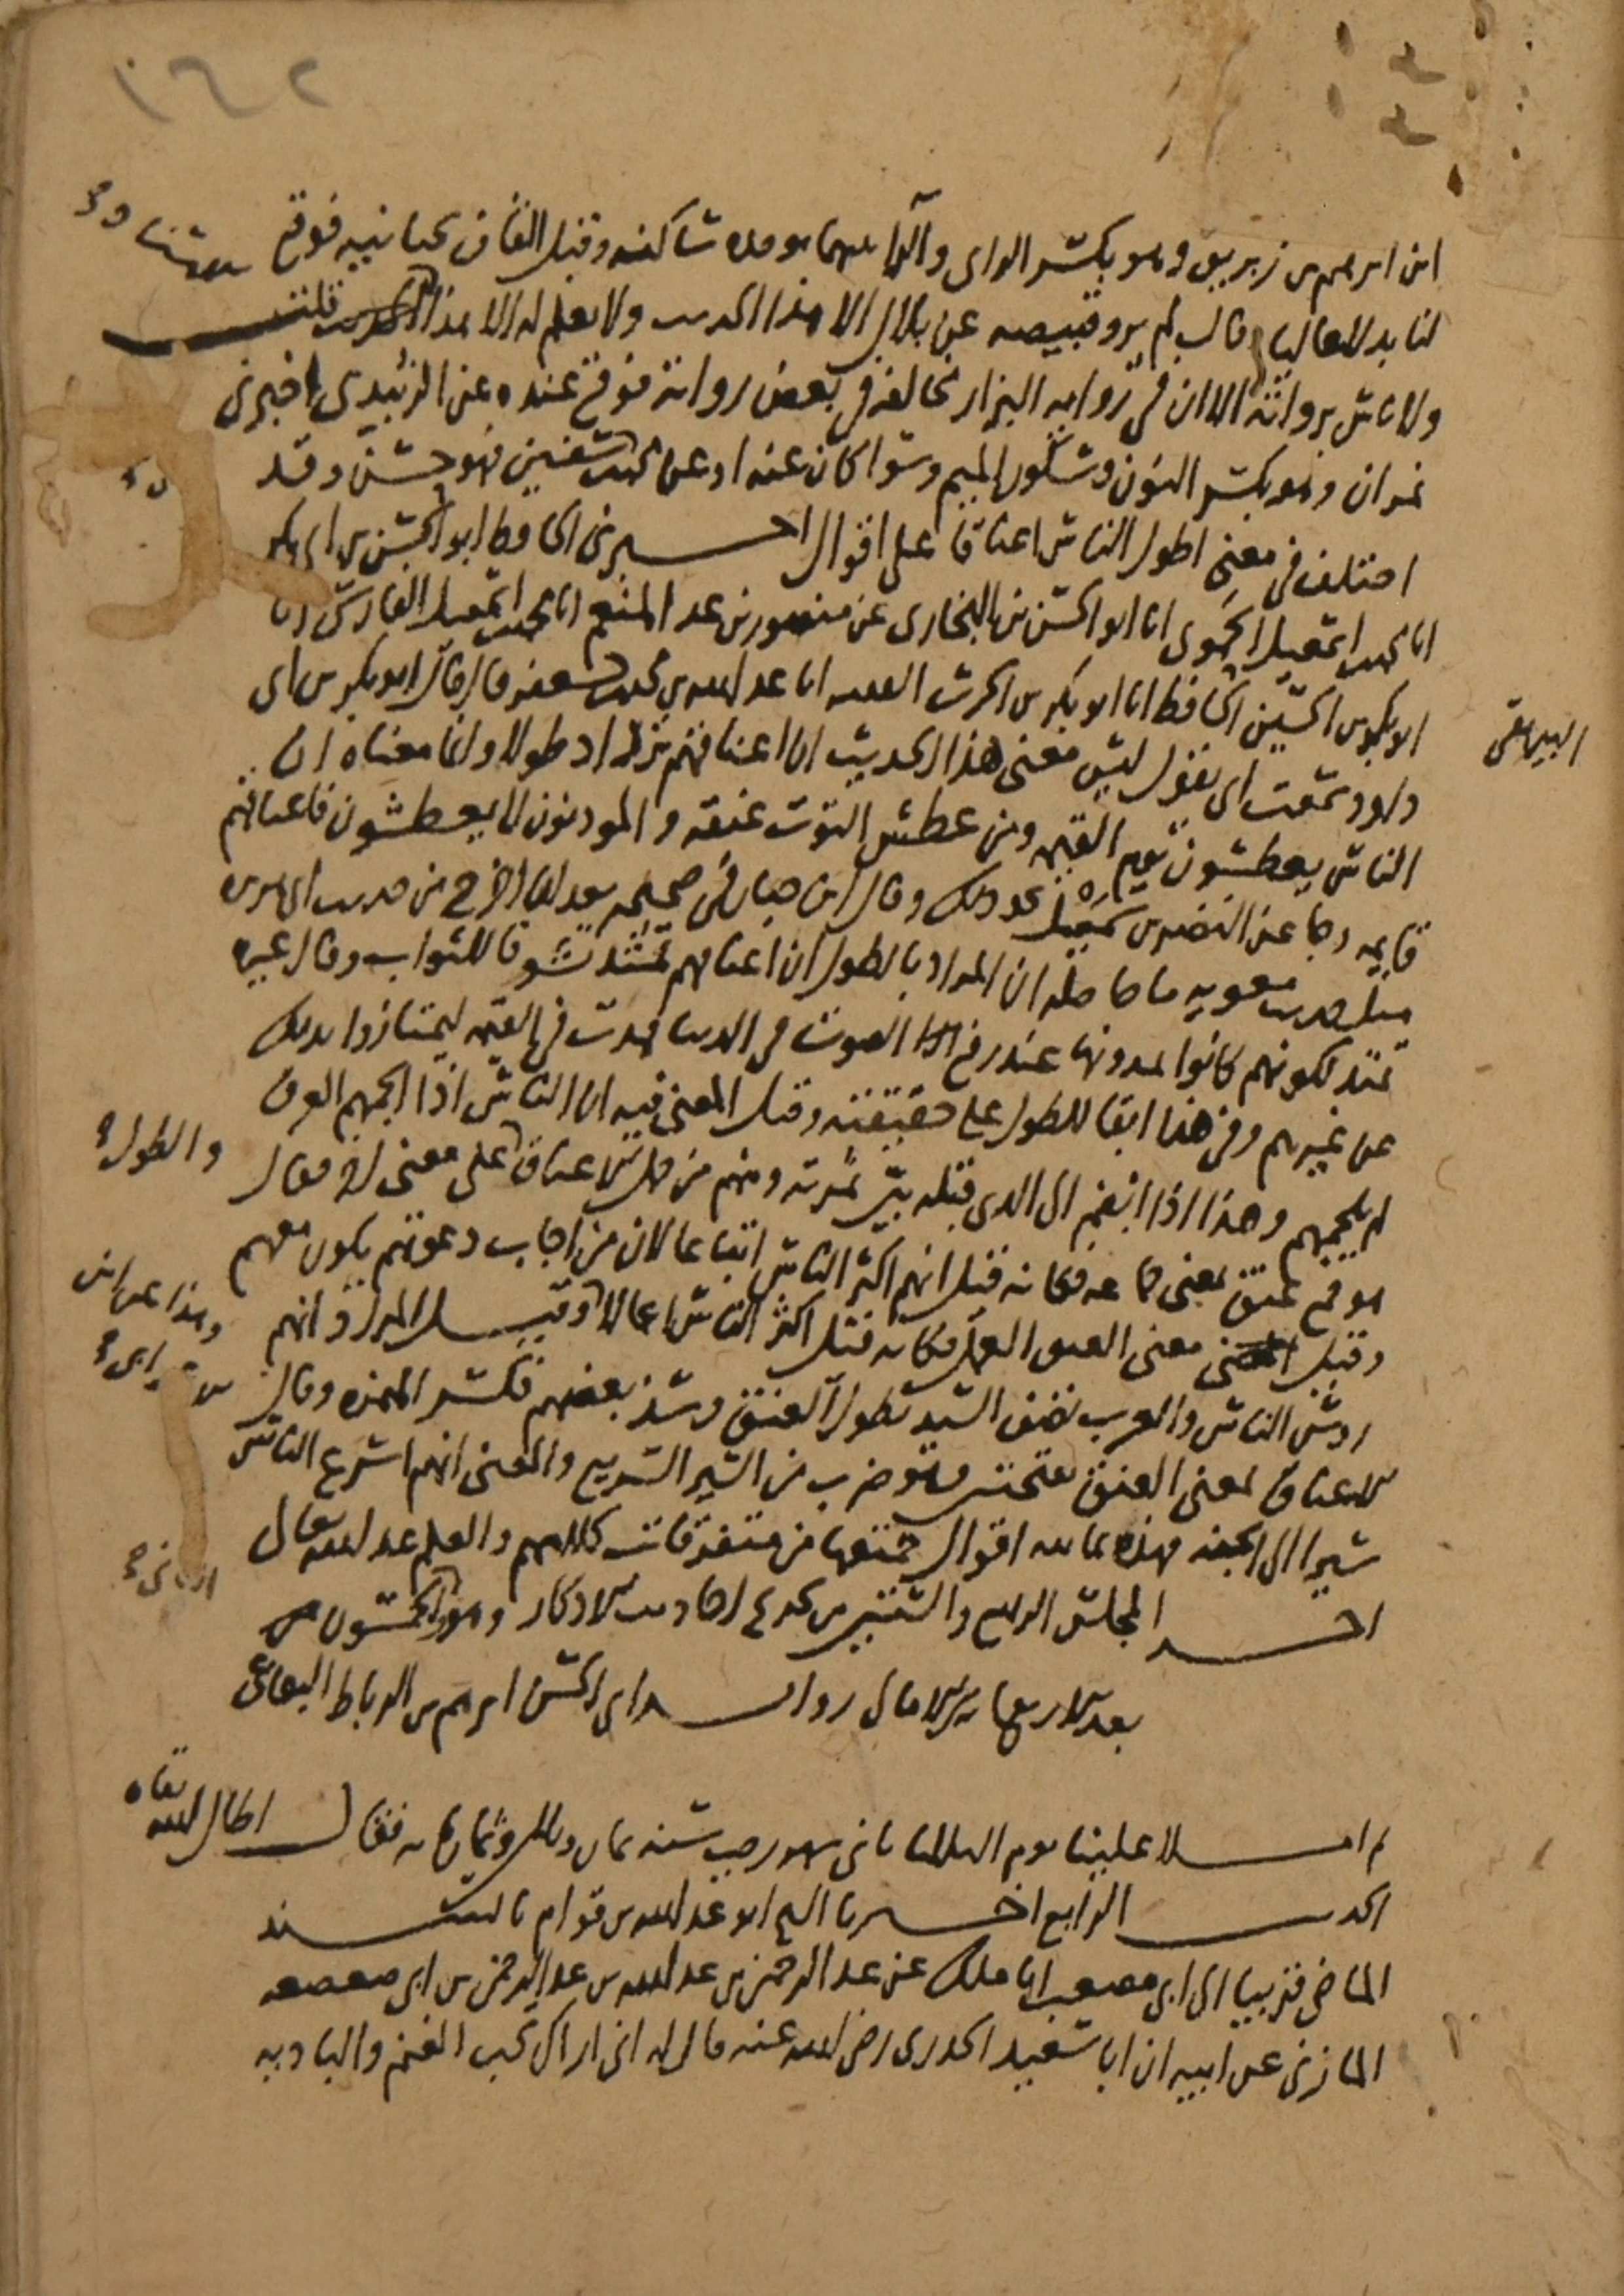 ١٤٢
ابن ابرهيم بن زبريق وهو بكسر الزاى والراء بينهما موحدة ساكنة وقبل القاف تحتانية فوقع
لنا بدلا عاليا وقال لم يرو قبيصة عن بلال الا هذا الحديث ولا نعلم له الا هذا الحديث قلت
ولا باس برواته الا ان فى رواية البزار مخالفة فى بعض رواته فوقع عنده عن الزبيدى اخبرنى
نمران وهو بكسر النون وسكون الميم وسوا كان عنه او عن محمد بن سفين فهو حسن وقد
اختلف فى معنى اطول الناس اعناقا على اقوال اخبرنى الحافظ ابو الحسن بن ابى بكر
انا محمد بن اسمعيل الحموى انا ابو الحسن بن البخارى عن منصور بن عبد المنعم انا محمد بن اسمعيل الفارسى انا
ابو بكر بن الحسين الحافظ انا ابو بكر بن الحرث الفقيه انا عبد الله بن محمد بن جعفر قال قال ابو بكر بن ابى
البيهقى
داود سمعت ابى يقول ليس معنى هذا الحديث ان اعناقهم تزداد طولا وانما معناه ان
الناس يعطشون يوم القيمة ومن عطش التوت عنقه والموذنون لا يعطشون فاعناقهم
قايمة وجا عن النضر بن شميل نحو ذلك وقال ابن حبان فى صحيحه بعد ان اخرج من حديث ابى هريرة
مثل حديث معوية ما حاصله ان المراد بالطول ان اعناقهم تمتد تشوقا للثواب وقال غيره
تمتد لكونهم كانوا يمدونها عند رفع الصوت فى الدنيا فمدت فى القيمة ليمتازوا بذلك
عن غيرهم وفى هذا ابقا للطول على حقيقته وقيل المعنى فيه ان الناس اذا الجمهم العرق
لم يلجمهم وهذا اذا انضم الى الذى قبله بين ثمرته ومنهم من حمل الاعناق والطول على معنى اخر فقال
هو جمع عنق بمعنى جماعة فكانه قيل انهم اكثر الناس اتباعا لان من اجاب دعوتهم يكون معهم
وقيل معنى العنق العمل فكانه قيل اكثر الناس اعمالا وقيل المراد انهم
وهذا عن ابن
روس الناس والعرب تصف السيد بطول العنق وشذ بعضهم فكسر الهمزة وقال
الاعناق بمعنى العنق بفتحتين وهو ضرب من السير السريع والمعنى انهم اسرع الناس
سيرا الى الجنة فهذه ثمانية اقوال جمعتها من متفرقات كلامهم والعلم عند الله تعالى
اخر المجلس الرابع والستين من تخريج احاديث الاذكار وهو الحمسون
بعد الاربعماية من الامالى رواية ابى الحسن ابرهيم بن الرباط البقاعى
ثم املا علينا يوم الثلاثا ثانى شهر رجب سنة ثمان وثلاثين وثمانماية فقال اطال الله بقاه
الحديث الرابع اخبرنا الشيخ ابو عبد الله بن قوام بالسند
الماضى قريبا الى ابى مصعب انا ملك عن عبد الرحمن بن عبد الله بن عبد الرحمن بن ابى صعصعة
المازنى عن ابيه ان ابا سعيد الخدرى رضى الله عنه قال له انى اراك تحب الغنم والبادية